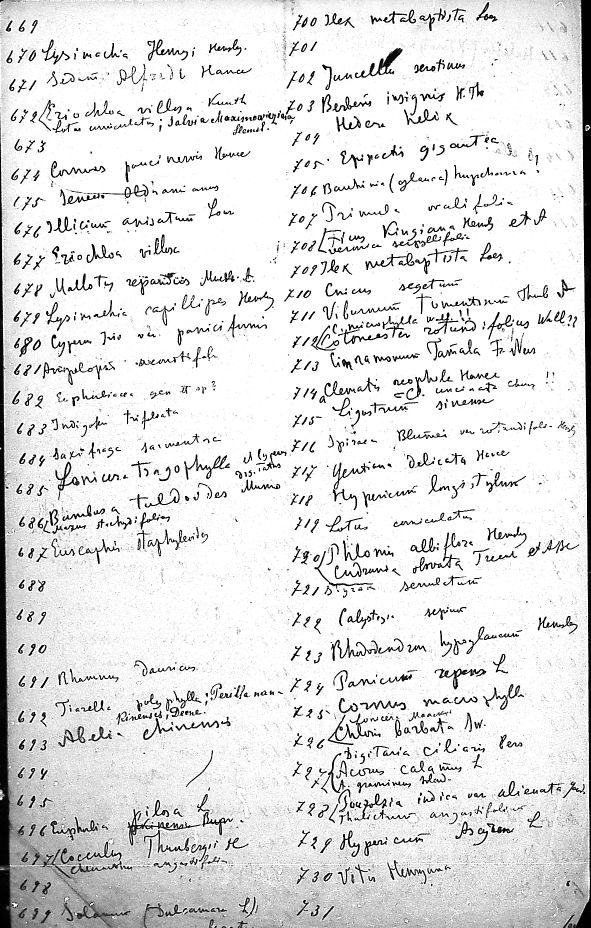 669
670 Lysimachia Henryi Hemsley.
671 Sedum Alfredi Hance
672 Eriochloa villosa Kunth
Lotus corniculatus; Salvia Maximowicziana
Hemsl.
673
674 Cornus paucinervis Hance
175 Senecio Oldhamianus
676 Illicium anisatum Lour
677 Eriochloa villosa
678 Mallotus repandus Muell. A.
679 Lysimachia capillipes Hemsley
680 Cyperus Iria var. paniciformis
681 Ampelopsis aconitifolia
682 Euphorbiacea gen et sp?
683 Indigofera trifoliata
684 Saxifraga sarmentosa
685 Lonicera tragophylla et Cyperus
686 Bambusa tuldoides Munro
Mazus stachydifolius
687 Euscaphis staphyleoides
688
689
690
691 Rhamnus dauricus
692 Tiarella polyphylla; Perilla nana
693 Abelia chinensis
694
695
pilosa L
696 Euphorbia
697 Cocculus Thunbergii DC
angustifolia
698
699 Solanum (Dulcamara L)!
700 Ilex metabaptista Loes
701
702 Juncellus serotinus
703 Berberis insignis H. Th
704 Hedera helix
705. Epipactis gigantea
706 Bauhinia (glauca) hupehana?
707 Primula ovalifolia
708 Ficus Kingiana Hemsl et A
Veronica serpyllifolia
709 Ilex metabaptista Loes.
710 Cnicus segetum
711 Viburnum Tomentosum Thunb A
C. microphylla Wall!!
712 Cotoneaster rotundifolius Wall??
713 Cinnamomum Tamala Fr. Nees
714 Clematis neophila Hance
=Cl. uncinata Champ!!
715 Ligustrum sinense
716 Spiraea Blumei var rotundifolia Hemsl
717 Gentiana delicata Hance
718 Hypericum longistylum
719 Lotus corniculatus
720 Phlomis albiflora Hemsley
Cudrania obovata Trecul et ABC
721 Styrax serrulatum
722 Calystegia sepium
723 Rhododendron hypoglaucum Hemsley
724 Panicum repens L
725 Cornus macrophylla
Lonicera Maackii
726 Chloris barbata Sw.
Digitaria ciliaris Pers
727 Acorus calamus L
A. gramineus Soland.
728 Pouzolzia indica var alienata
Thalictrum angustifolium
729 Hypericum Ascyron L
730 Vitis Henryana
731